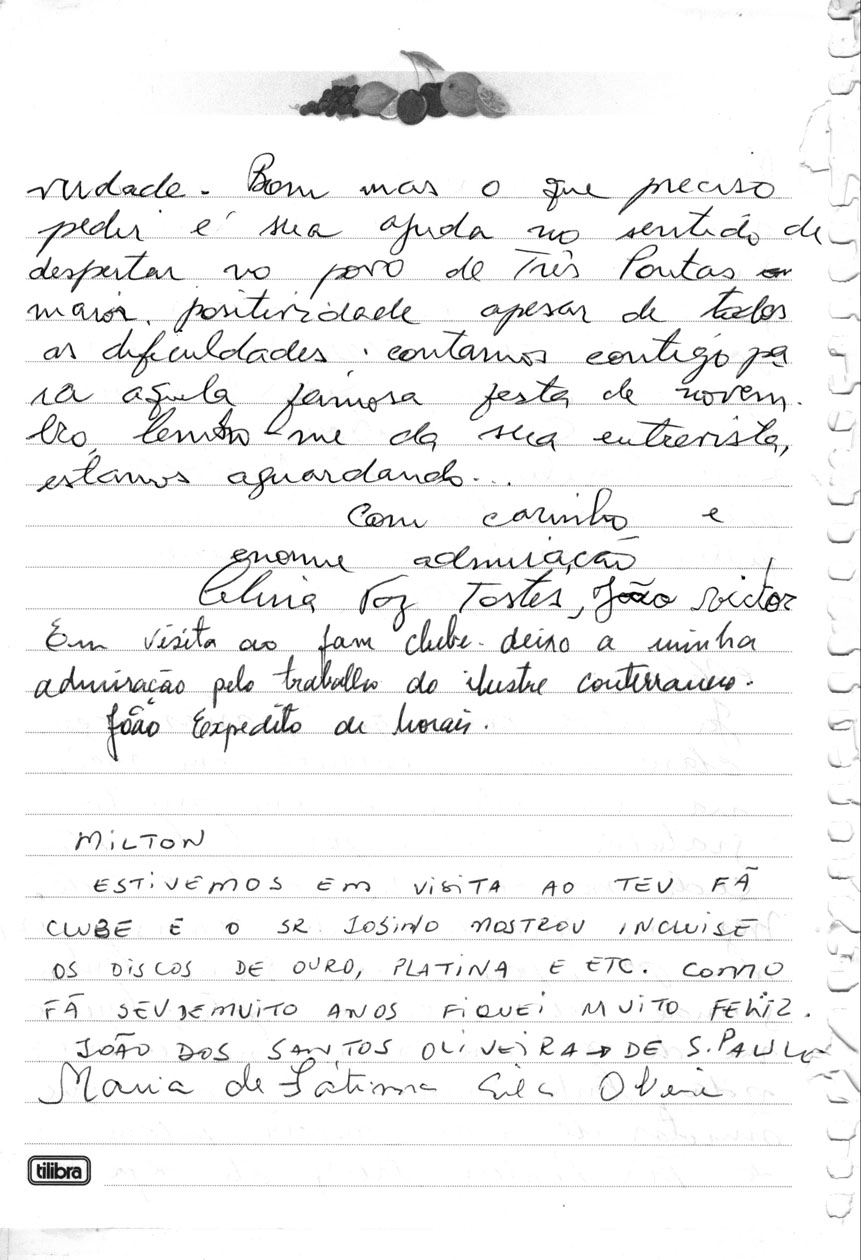 verdade. Bom mas o que preciso
pedir é sua ajuda no sentido de
despertar no povo de Três Pontas
maior. positividade apesar de todos
as dificuldades. contamos contigo pa
ra aquela famosa festa de novem.
bro, lembro-me da sua entrevista,
estamos aguardando...
Com carinho e
enorme admiração
Célma Voz Tostes, João Victor
Em visita ao fam clube. deixo a minha
admiração pelo trabalho do ilustre conterraneo.
João Expedito de Morais.
MILTON
ESTIVEMOS EM VISITA AO TEU FÃ
CLUBE E O SR JOSINO MOSTROU INCLUISE
OS DISCOS DE OURO, PLATINA E ETC. COMO
FÃ SEU DE MUITO ANOS FIQUEI MUITO FELIZ.
JOÃO DOS SANTOS OLIVEIRA → DE S. PAULO
Maria de Fátima Oliveira
tilibra